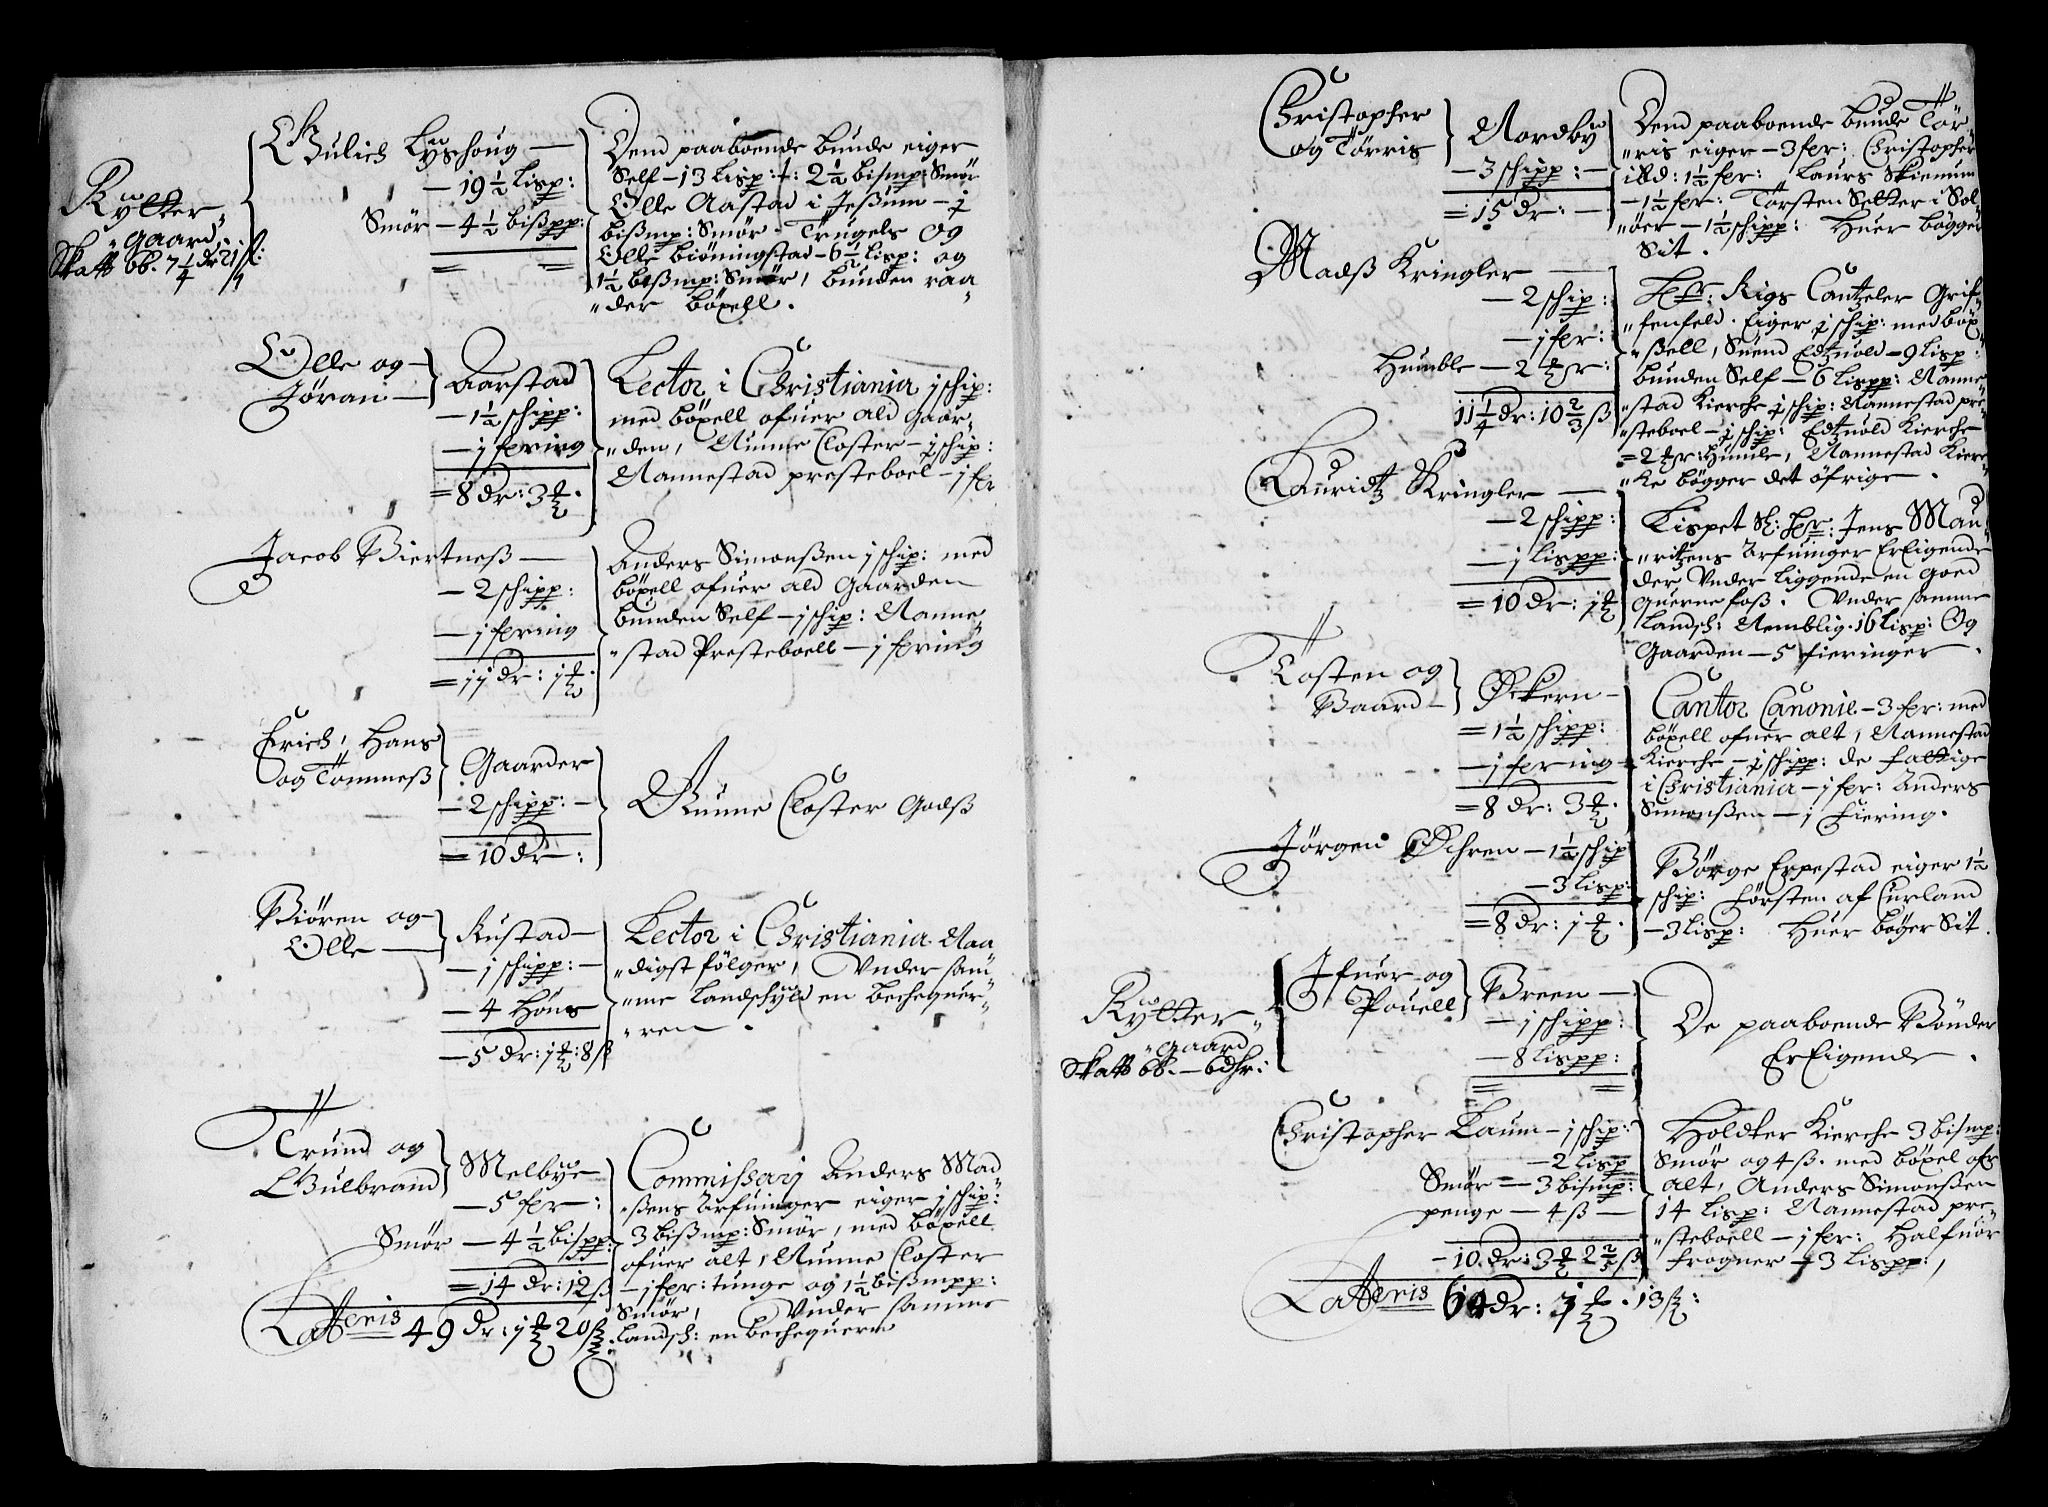 Rytter-
gaard
Skatt bb. 7 1/4 dr 21 ß:
Gulich Lyschoug —
— 19 1/2 Lisp:
Smör — 4 1/2 bißpp:
Dend paaboende bunde eiger
Self — 13 Lisp: 2 1/2 bismp: Smör
Olle Aastad i Jeßum — j
bißmp: Smör. Trugels Og
Olle biöningstad — 6 1/2 Lisp: og
1 1/2 bißmp: Smör, bunden raa-
der böxell.
Olle og
Jöran —
Aarstad
— 1 1/2 schipp:
— j fering
= 8 dr: 3 
Lector i Christiania j schip:
med böxell ofuer ald gaar-
den, Nunne Closter — j schip:
Nannestad presteboel — j fer
Jacob Biertneß —
— 2 schipp:
— j fering
= 11 dr: 1 
Anders Simonßen j schip: med
böxell ofuer ald Gaarden
bunden Self — j schip: Nanne-
stad Presteboell — j fering
Erich, Hans
og Tommeß
Gaarder
— 2 schipp: —
= 10 dr:
Nunne Closter Godß
Biören og
Olle —
Rustad —
— j schipp: —
— 4 Höns
— 5 dr: 1 : 8 ß
Lector i Christiania Raa
digst fölger, Vnder sam-
me Landschyld en bechequer-
ren.
Trund og
Gulbrand
Melbye —
— 5 fer:
Smör — 4 1/2 bispp:
= 14 dr: 12 ß
Commissarj Anders Mad
ßens Arfuinger eiger j schip:
3 bißmp: Smör, med böxell
ofuer alt, Nunne Closter
— j fer: tunge og 1 1/2 bißmpp:
Smör, Vnder samme
Landsch: en bechequern
Latteris 49 dr: 1 20 ß
Christopher
og Törris
Nordby
— 3 schipp: —
= 15 dr: —
Dend paaboende bunde Tör-
ris eiger — 3 fer: Christopher
ibd: 1 1/2 fer: Laurs Skiemum
— 1 1/2 fer: Torsten Setter i Sol
öer — 1 1/2 schipp: Huer bögger
Sit.
Madß Kringler —
— 2 schip:
— j fer:
Humble — 2 
11 1/4 dr: 10 2/3 ß
Her: Rigs Cantzeler Grif-
fenfeld. Eiger j schip: med böx-
ßell, Suend Edtzuold — 9 Lisp:
bunden Self — 6 Lispp: Nanne-
stad Kierche j schip: Nannestad pre-
steboel — j schip: Edtzuold Kierche
= 2 : Humle, Nannestad Kier-
ke bögger det öfrige.
Lauridtz Kringler —
— 2 schipp:
— j Lispp:
= 10 dr: 1 
Lispet Sl: Her: Jens Mau-
ritzens Arfuinger Er Eigende
der Vnder Liggende en Goed
querne foß. Vnder samme
Landsch: Nemblig. 16 Lisp: Og
Gaarden — 5 fieringer.
Tosten og
Baard —
Öckern —
= 1 1/2 schipp:
— j fering —
= 8 dr: 3 
Cantor Canonie — 3 fer: med
böxell ofuer alt, Nannestad
Kierche — j schipp: de fattige
i Christiania — j fer: Anders
Simonßen — j Fiering.
Jörgen Öchren — 1 1/2 schip
— 3 Lisp:
= 8 dr: 1 
Börge Erpestad eiger 1 1/2
schip: Försten af Curland
— 3 Lisp: Huer böger Sit.
Rytter-
gaard
Skatt bb. — 6 dhr:
Ifuer og
Pouell
Breen —
— j schipp:
— 8 Lispp:
De paaboende Bönder
Er Eigende.
Christopher Laum — j schip:
— 2 Lisp
Smör — 3 bismp:
penge — 4 ß —
— 10 dr: 3 2 2/5 ß
Holdter Kierche 3 bismp:
Smör og 4 ß. med böxel ofr
alt, Anders Simonßen
14 Lisp: Nannestad pre-
steboell — j fer: Halfuor
frogner — 3 Lispp:,
Latteris dr: 13 ß: